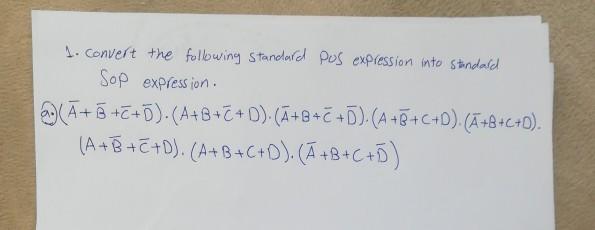 1. Convert the following standard POS expression into standard
SOP expression.
a. (A̅+B̅+C̅+D̅).(A+B+C̅+D).(A̅+B+C̅+D̅).(A+B̅+C+D).(A̅+B+C+D).
(A+B̅+C̅+D).(A+B+C+D).(A̅+B+C+D̅)